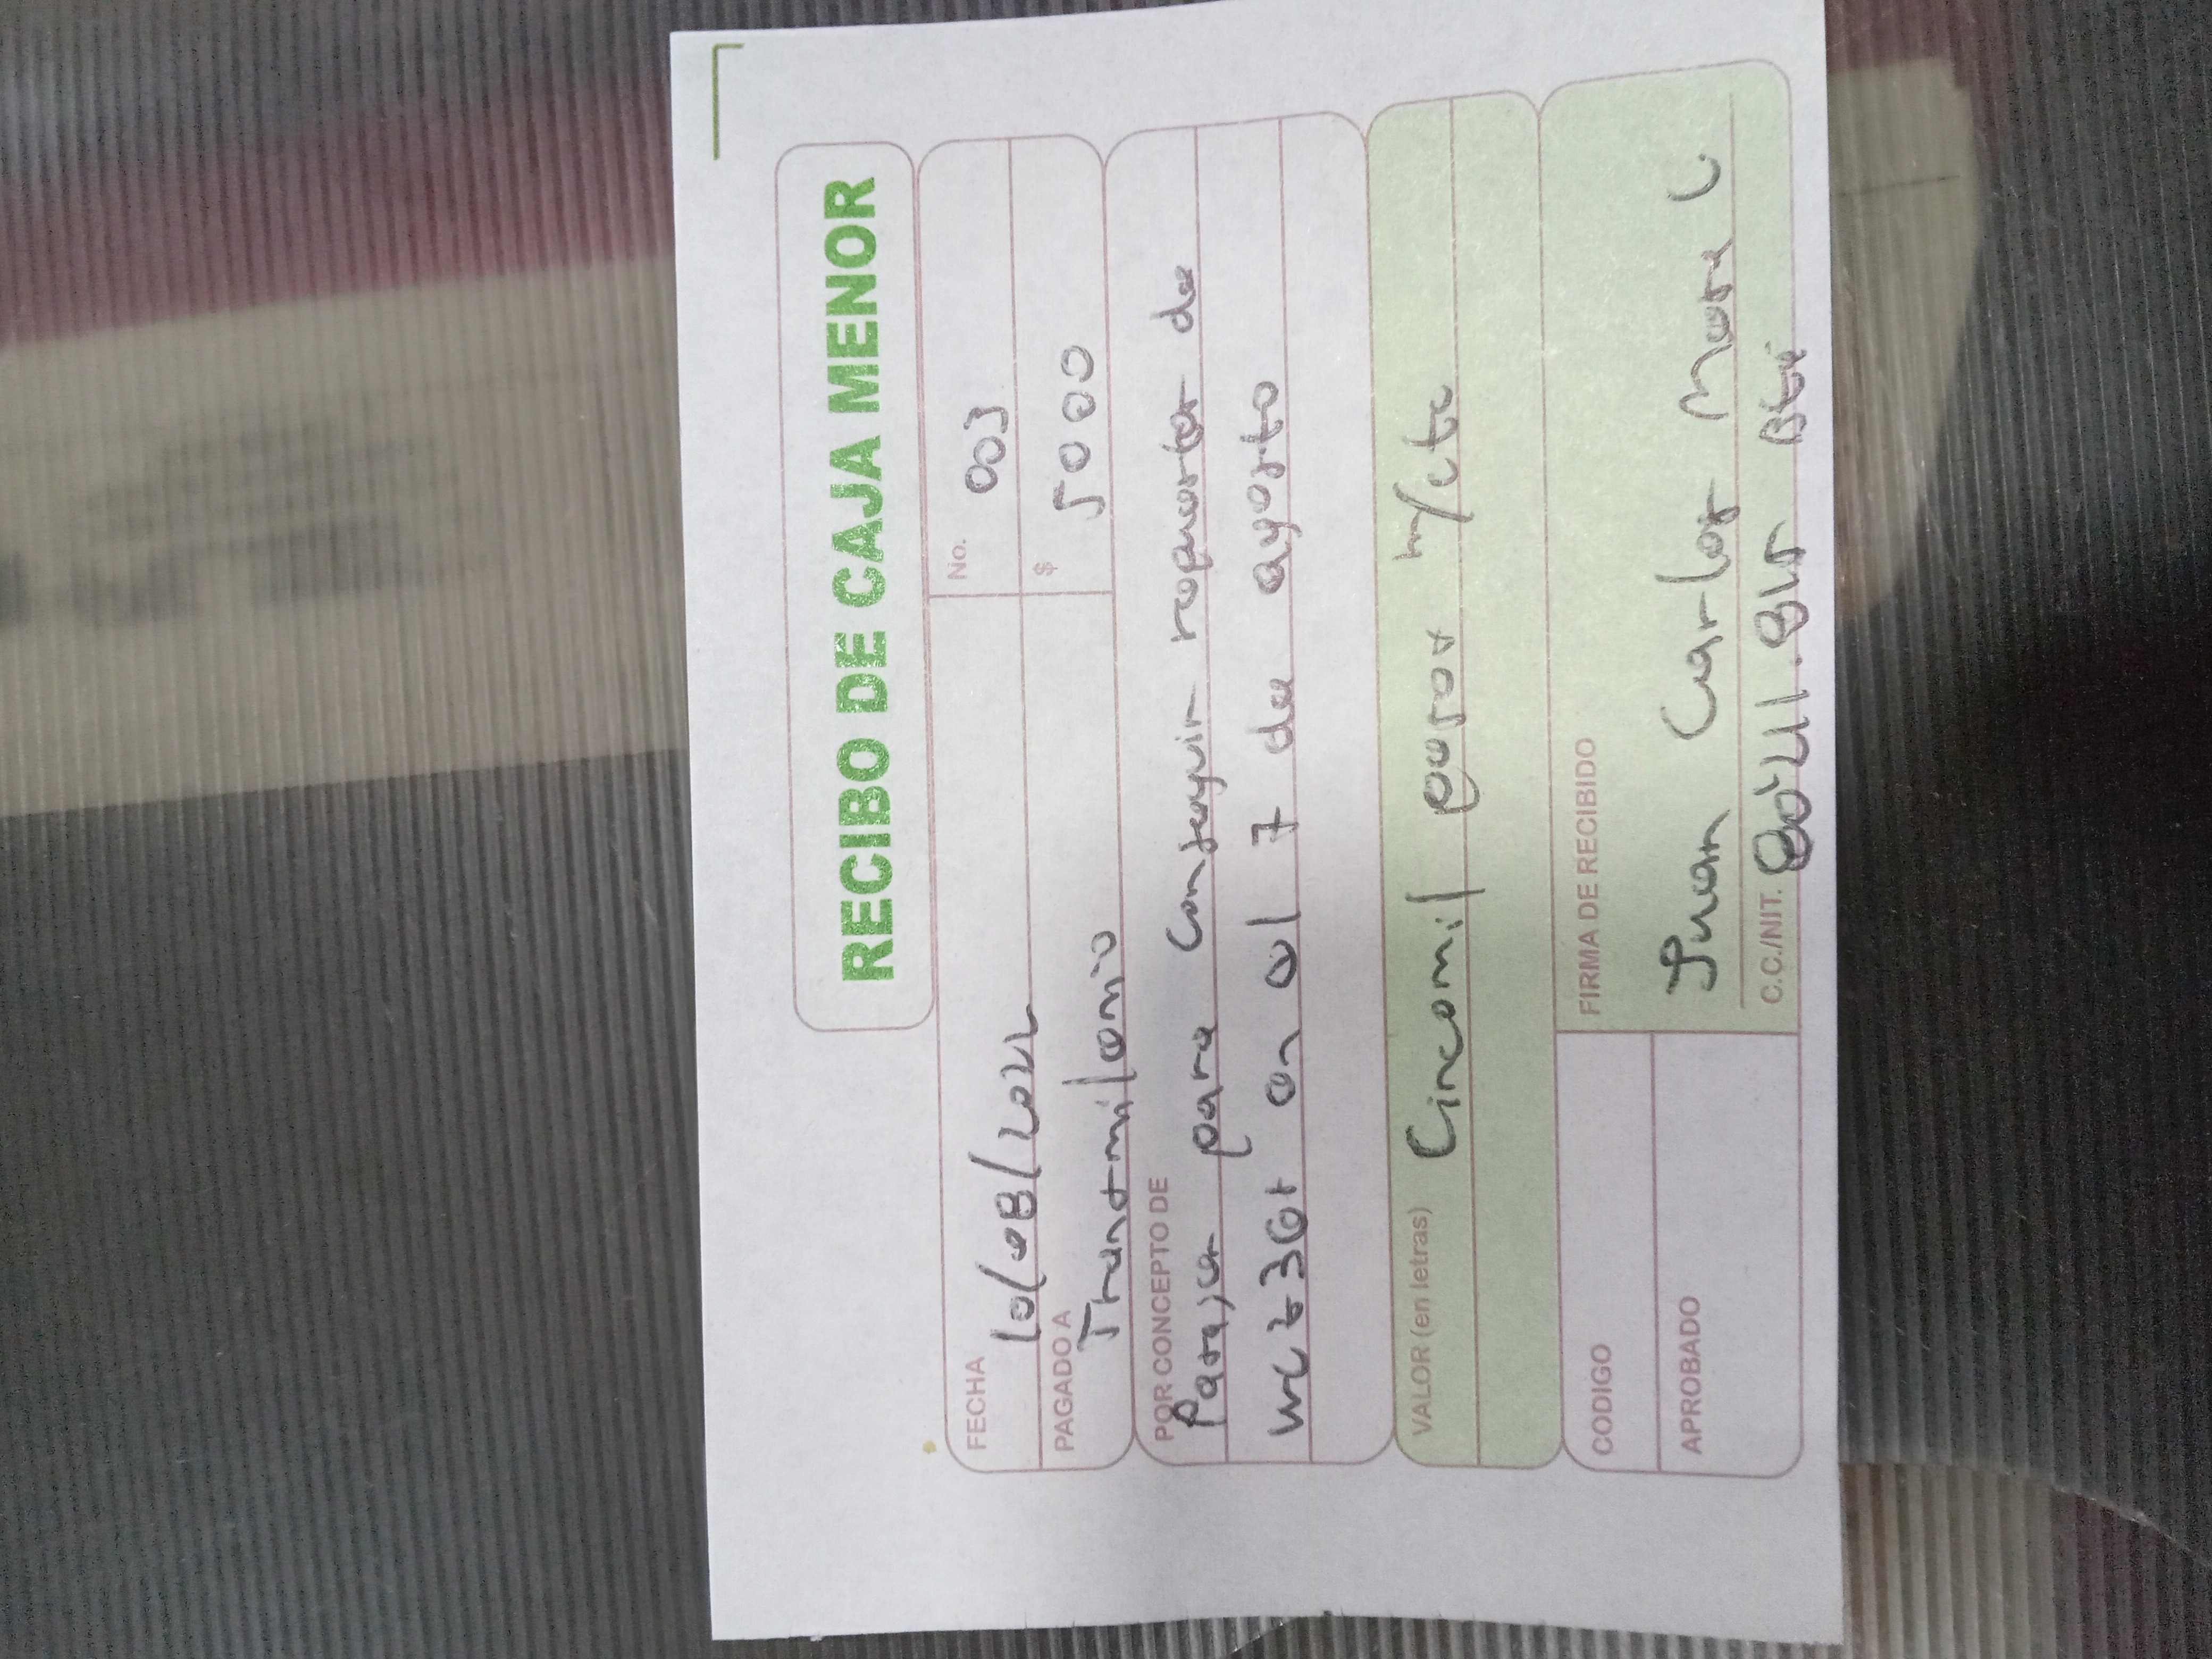 RECIBO DE CAJA MENOR
FECHA 10/08/2022 No. 003
PAGADO A Transmilenio $ 5000
POR CONCEPTO DE
Pasajes para conseguir repuestos de
en el 7 de agosto
VALOR (en letras) Cincomil pesos m/cte
CODIGO FIRMA DE RECIBIDO
APROBADO Juan Carlos Mora C
C.C./NIT. Bta